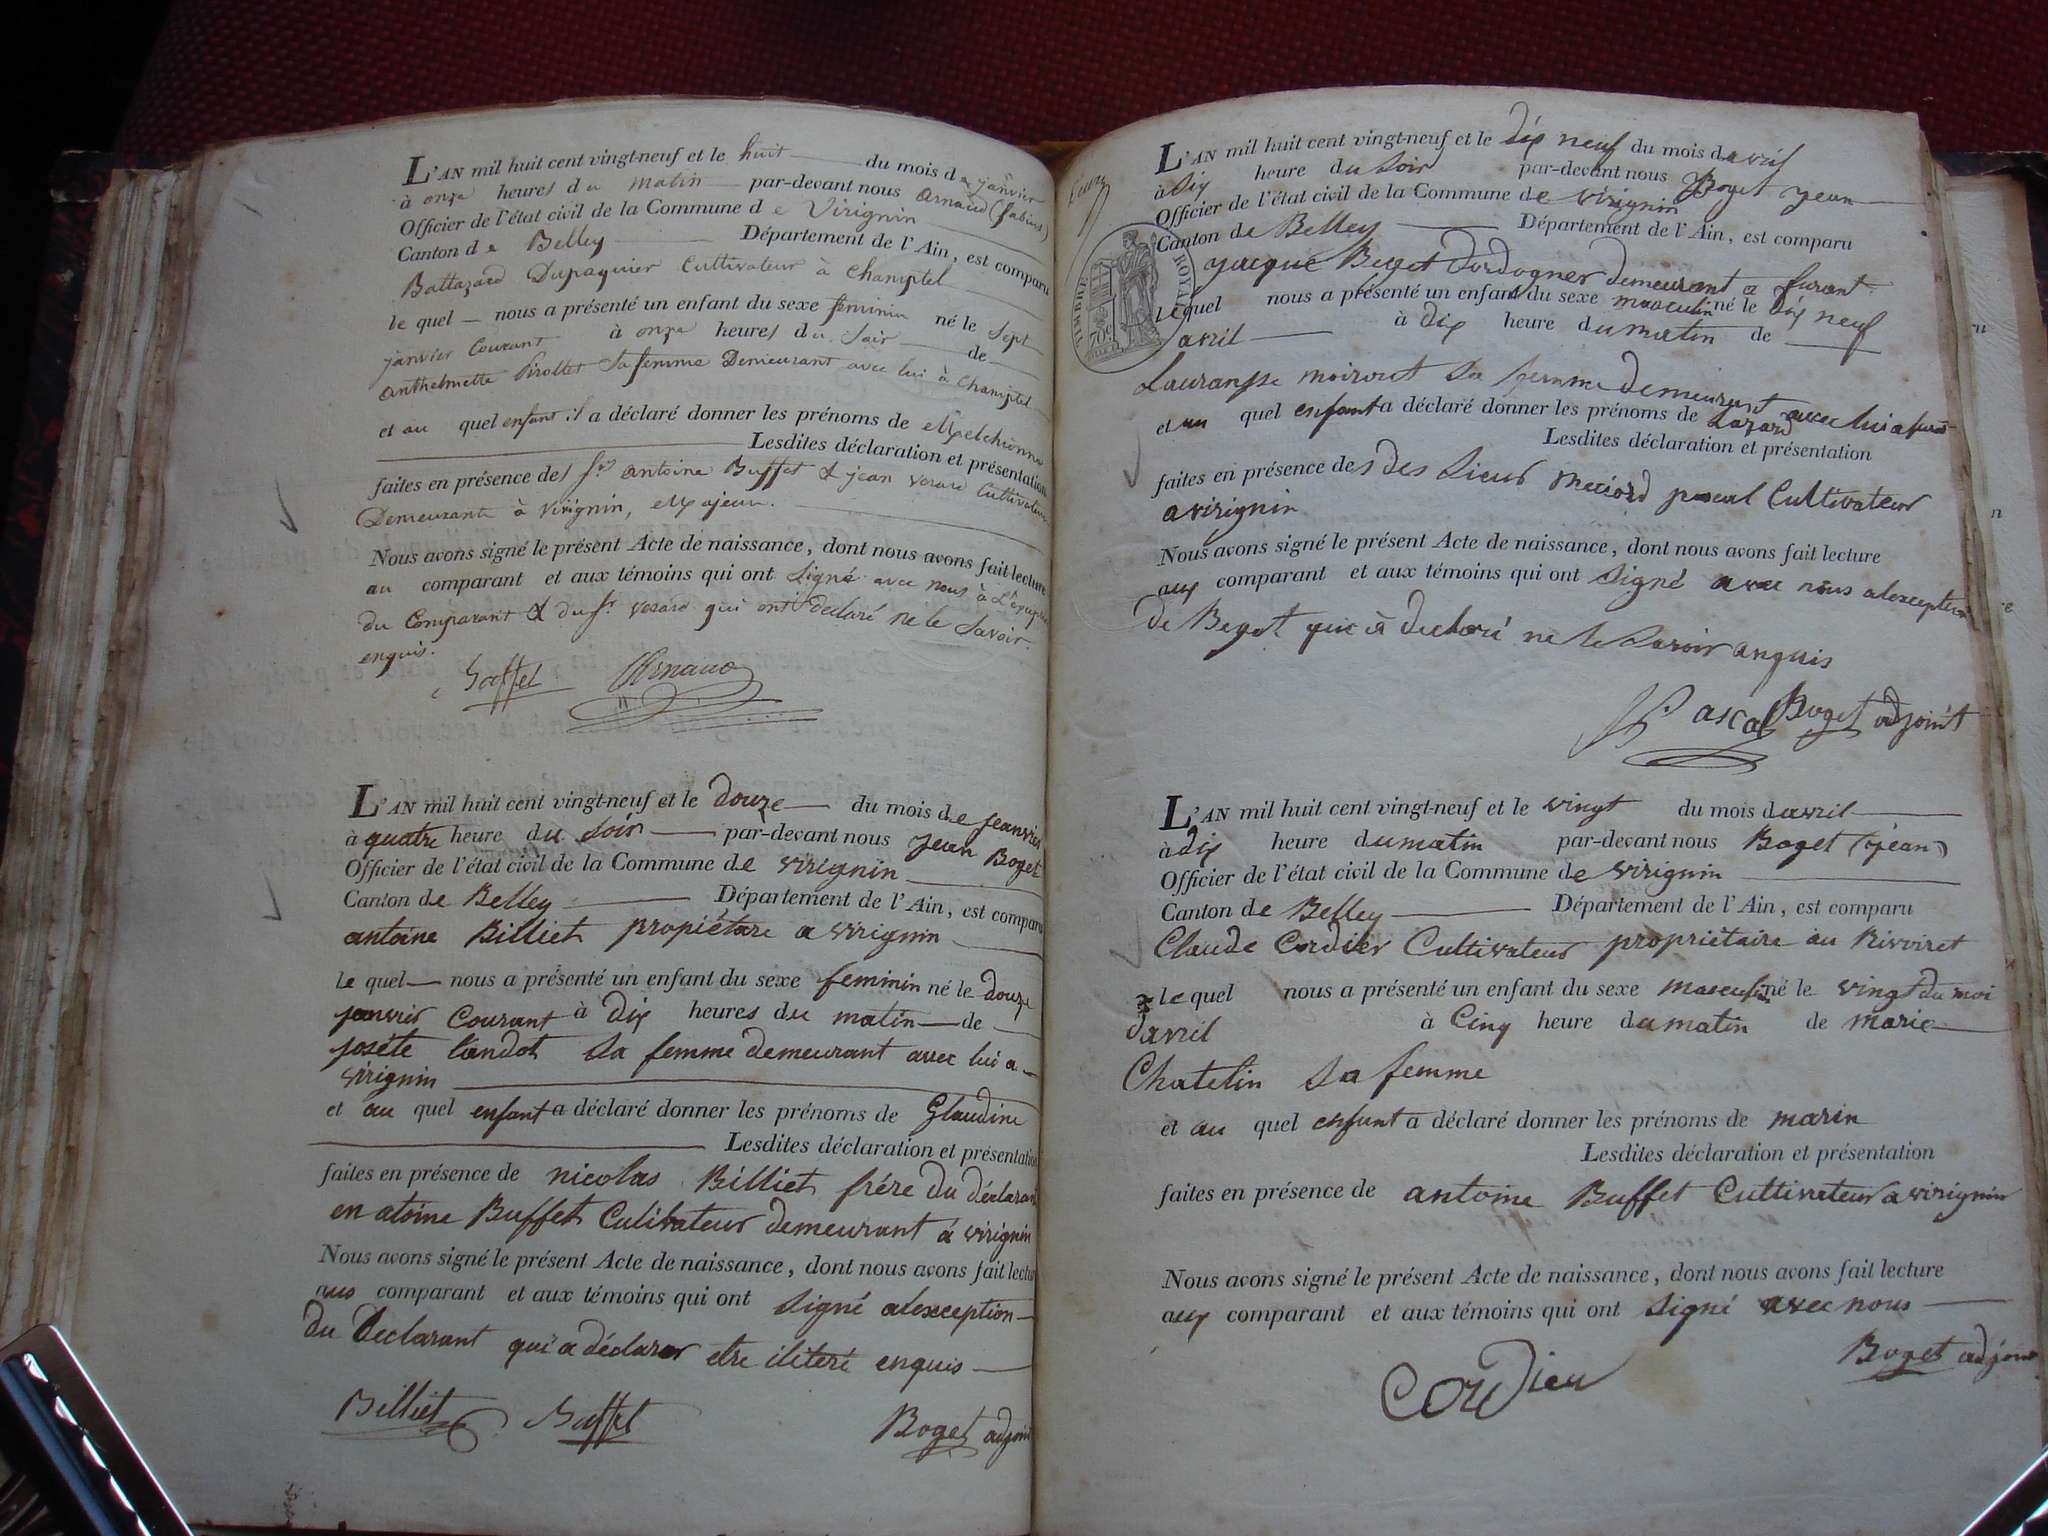 L'AN mil huit cent vingt-neuf et le huit du mois de janvier
à onze heures du matin par-devant nous Arnaud (fabien)
Officier de l'état civil de la Commune de Virignin
Canton de Belley Département de l'Ain, est comparu
Baltazard Dupaquier Cultivateur à Champtel
le quel nous a présenté un enfant du sexe feminin né le Sept
janvier Courant à onze heures du Soir de
anthelmette Pirollet Sa femme Demeurant avec lui à Champtel
et au quel enfant il a déclaré donner les prénoms de Melchionne
Lesdites déclaration et présentation
faites en présence des Srs antoine Buffet & jean verard Cultivateurs
Demeurants à Virignin, Majeur.
Nous avons signé le présent Acte de naissance, dont nous avons fait lecture
au comparant et aux témoins qui ont Signé avec nous à L'
du Comparant & du Sr. verard qui ont declaré ne le Savoir.
enquis.
Boffet Arnaud
L'AN mil huit cent vingt-neuf et le douze du mois de jeanvier
à quatre heure du Soir par-devant nous jean Boget
Officier de l'état civil de la Commune de virignin
Canton de Belley Département de l'Ain, est comparu
antoine Billiet propiétare a virignin
le quel nous a présenté un enfant du sexe feminin né le douze
janvier Courant à dix heures du matin de
joséte landot Sa femme demeurant avec lui a
virignin
et au quel enfant a déclaré donner les prénoms de Glaudine
Lesdites déclaration et présentation
faites en présence de nicolas Billiet frére du déclarant
en atoine Buffet Culitateur demeurant á virignin
Nous avons signé le présent Acte de naissance, dont nous avons fait lecture
aus comparant et aux témoins qui ont Signé alexception
du declarant qui a déclarer etre iliteré enquis
Billiet Boffet Boget adjoint
L'AN mil huit cent vingt-neuf et le dix neuf du mois davril
à Six heure du Soir par-devant nous Boget jean
Officier de l'état civil de la Commune de virignin
Canton de Belley Département de l'Ain, est comparu
TIMBRE ROYAL
70c
jacque Beget demeurant a furant
Lequel nous a présenté un enfant du sexe masculin né le dix neuf
avril à dix heure du matin de
Lauranse moirout Sa femme demeurant avec lui a furant
et au quel enfant a déclaré donner les prénoms de Lazard
Lesdites déclaration et présentation
faites en présence des des Sieur pascal Cultivateur
a virignin
Nous avons signé le présent Acte de naissance, dont nous avons fait lecture
aux comparant et aux témoins qui ont Signé avec nous alexception
de Beget qui a declaré ne le Savoir anquis
Pascal Boget adjoint
L'AN mil huit cent vingt-neuf et le vingt du mois davril
à dix heure du matin par-devant nous Boget (jean)
Officier de l'état civil de la Commune de virignin
Canton de Belley Département de l'Ain, est comparu
Claude Cordier Cultivateur propriétaire au Rivoiret
Le quel nous a présenté un enfant du sexe masculin né le vingt du moi
davril à Cinq heure du matin de marie
Chatelin Sa femme
et au quel enfant a déclaré donner les prénoms de marin
Lesdites déclaration et présentation
faites en présence de antoine Buffet Cultivateur a virignin
Nous avons signé le présent Acte de naissance, dont nous avons fait lecture
aux comparant et aux témoins qui ont Signé avec nous
Cordieu Boget adjoin